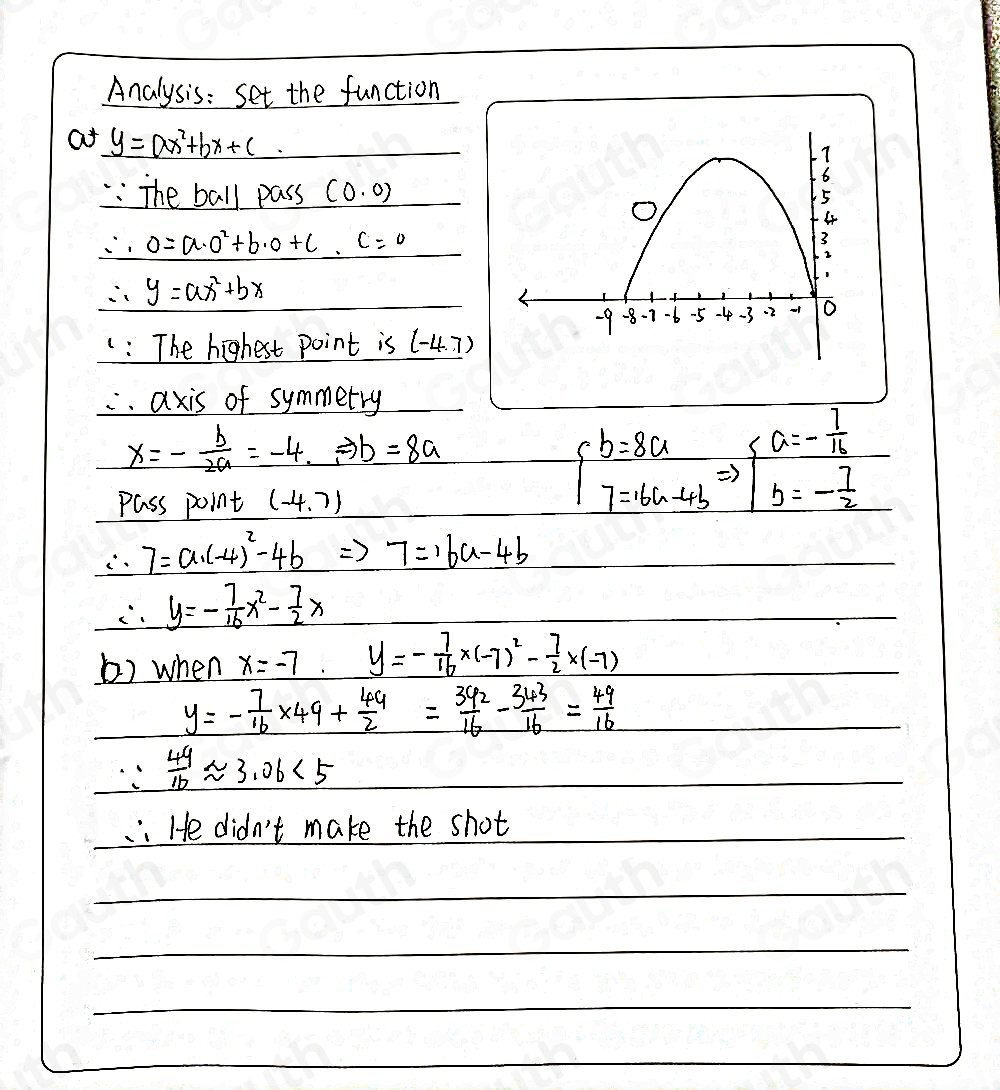 Analysis: set the function
a) y=ax²+bx+c.
∵ The ball pass (0.0)
∴ 0=a·0²+b·0+c. c=0
∴ y=ax²+bx
∵ The highest point is (-4.7)
∴ axis of symmetry
x=-b/2a=-4. ⇒b=8a
Pass point (-4.7)
∴ 7=a·(-4)²-4b => 7=16a-4b
{ b=8a
7=16a-4b => { a=-7/16
b=-7/2
∴ y=-7/16x²-7/2x
b) when x=-7. y=-7/16×(-7)²-7/2×(-7)
y=-7/16×49+49/2 = 392/16-343/16=49/16
∵ 49/16≈3.06<5
∴ He didn't make the shot
7
6
5
4
3
2
1
-9 -8 -7 -6 -5 -4 -3 -2 -1 0
Gauth